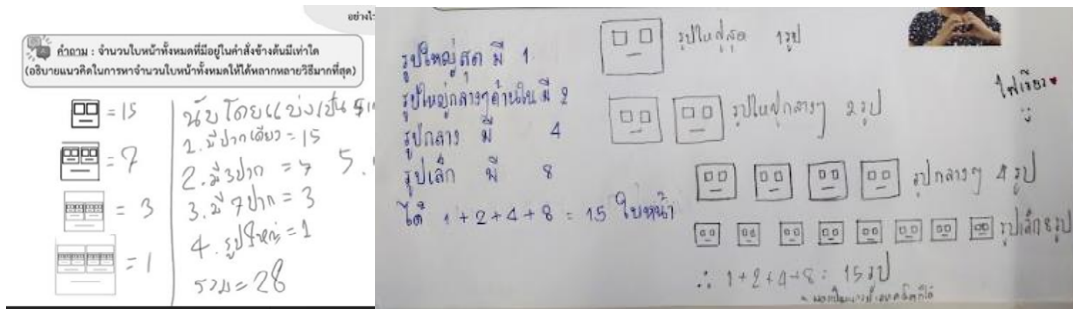 อย่างไร
คำถาม : จำนวนใบหน้าทั้งหมดที่มีอยู่ในคำสั่งข้างต้นมีเท่าใด
(อธิบายแนวคิดในการหาจำนวนใบหน้าทั้งหมดให้ได้หลากหลายวิธีมากที่สุด)
= 15
= 7
= 3
= 1
นับโดยแบ่งเป็น
1. มีปากเดียว = 15
2. มี 3 ปาก = 7
3. มี 7 ปาก = 3
4. รูปใหญ่ = 1
รวม = 28
5.
รูปใหญ่สุด มี 1
รูปใหญ่กลางๆด้านใน มี 2
รูปกลาง มี 4
รูปเล็ก มี 8
ได้ 1 + 2 + 4 + 8 = 15 ใบหน้า
รูปใหญ่สุด 1 รูป
รูปใหญ่กลางๆ 2 รูป
รูปกลางๆ 4 รูป
รูปเล็ก 8 รูป
∴ 1 + 2 + 4 + 8 = 15 รูป